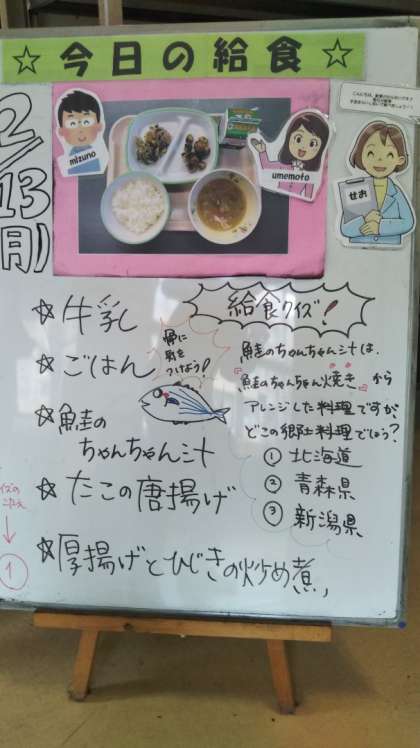 ☆ 今日の給食 ☆
2/13(月)
mizuno
umemoto
せお
☆牛乳
☆ごはん
☆鮭の
ちゃんちゃん汁
☆たこの唐揚げ
☆厚揚げとひじきの炒め煮
骨に
気を
つけよう!
給食クイズ!
鮭のちゃんちゃん汁は、
鮭のちゃんちゃん焼きから
アレンジした料理ですが、
どこの郷土料理でしょう?
① 北海道
② 青森県
③ 新潟県
クイズの
↓
①